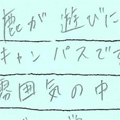 鹿が遊びに
キャンパスです
雰囲気の中